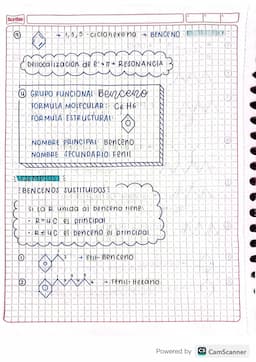 Scribe
→ 1,3,5 - ciclohexeno → BENCENO
Delocalización de e⁻ → π → RESONANCIA
GRUPO FUNCIONAL: Benceno
FORMULA MOLECULAR: C6H6
FORMULA ESTRUCTURAL
NOMBRE PRINCIPAL: Benceno
NOMBRE SECUNDARIO: Fenil
BENCENOS SUSTITUIDOS:
Si La R unida al benceno tiene:
el principal
el benceno el principal
① → Etil-Benceno
② → Fenil-Hexano
Powered by CS CamScanner